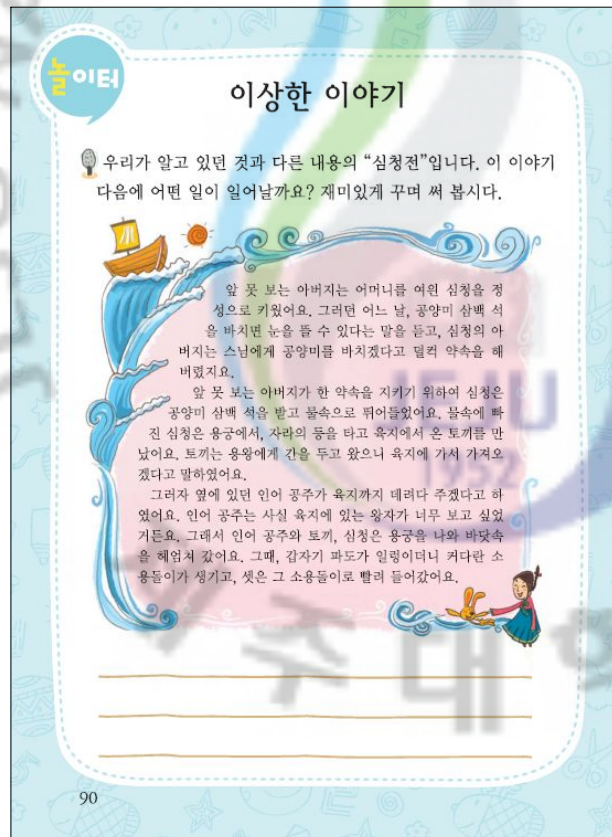 놀이터
이상한 이야기
우리가 알고 있던 것과 다른 내용의 “심청전”입니다. 이 이야기
다음에 어떤 일이 일어날까요? 재미있게 꾸며 써 봅시다.
앞 못 보는 아버지는 어머니를 여읜 심청을 정
성으로 키웠어요. 그러던 어느 날, 공양미 삼백 석
을 바치면 눈을 뜰 수 있다는 말을 듣고, 심청의 아
버지는 스님에게 공양미를 바치겠다고 덜컥 약속을 해
버렸지요.
앞 못 보는 아버지가 한 약속을 지키기 위하여 심청은
공양미 삼백 석을 받고 물속으로 뛰어들었어요. 물속에 빠
진 심청은 용궁에서, 자라의 등을 타고 육지에서 온 토끼를 만
났어요. 토끼는 용왕에게 간을 두고 왔으니 육지에 가서 가져오
겠다고 말하였어요.
그러자 옆에 있던 인어 공주가 육지까지 데려다 주겠다고 하
였어요. 인어 공주는 사실 육지에 있는 왕자가 너무 보고 싶었
거든요. 그래서 인어 공주와 토끼, 심청은 용궁을 나와 바닷속
을 헤엄쳐 갔어요. 그때, 갑자기 파도가 일렁이더니 커다란 소
용돌이가 생기고, 셋은 그 소용돌이로 빨려 들어갔어요.
JEJU
1952
제주대학
90